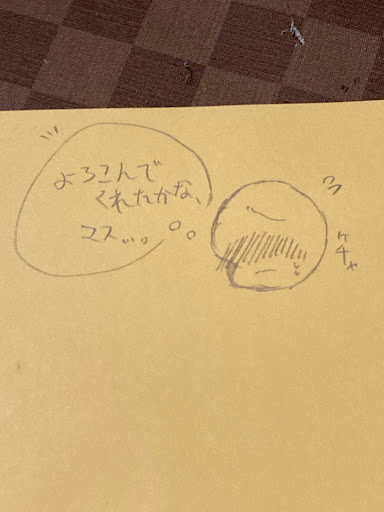 よろこんで
くれたかな、
マス…。
ケチャ